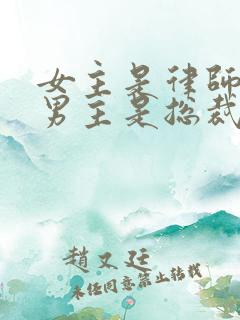 女主是律师
男主是总裁
趙又廷
未经同意禁止转载